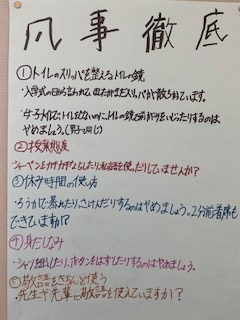 凡事徹底
①トイレのスリッパを整える トイレの鏡
・入学式の日から言われて、まだまだスリッパが散らかています。
・女子トイレで、トイレをしないのに、トイレの鏡で前がりをいじったりするのは
やめましょう。(男子も同じ)
②授業態度
シャーペンをカチカチならしたり私語を使ったりしていませんか?
③休み時間の使い方
・ろうかで暴れたり、さけんだりするのはやめましょう。2分前着席も
できていますか!?
④身だしなみ
・シャツを出したり、ボタンをはずしたりするのはやめましょう。
⑤敬語をきちんと使う
・先生や先輩に敬語を使えていますか?